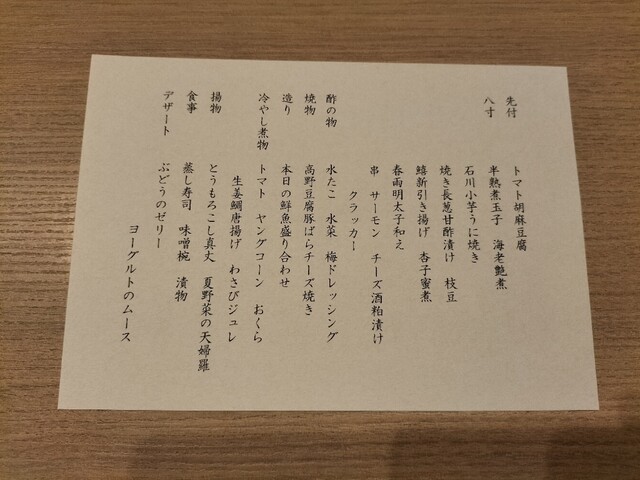 先付　トマト胡麻豆腐
八寸　半熟煮玉子　海老艶煮
石川小芋うに焼き
焼き長葱甘酢漬け　枝豆
鱚新引き揚げ　杏子蜜煮
春雨明太子和え
串　サーモン　チーズ酒粕漬け
クラッカー
酢の物　水たこ　水菜　梅ドレッシング
焼物　高野豆腐豚ばらチーズ焼き
造り　本日の鮮魚盛り合わせ
冷やし煮物　トマト　ヤングコーン　おくら
生姜鯛唐揚げ　わさびジュレ
揚物　とうもろこし真丈　夏野菜の天婦羅
食事　蒸し寿司　味噌椀　漬物
デザート　ぶどうのゼリー
ヨーグルトのムース